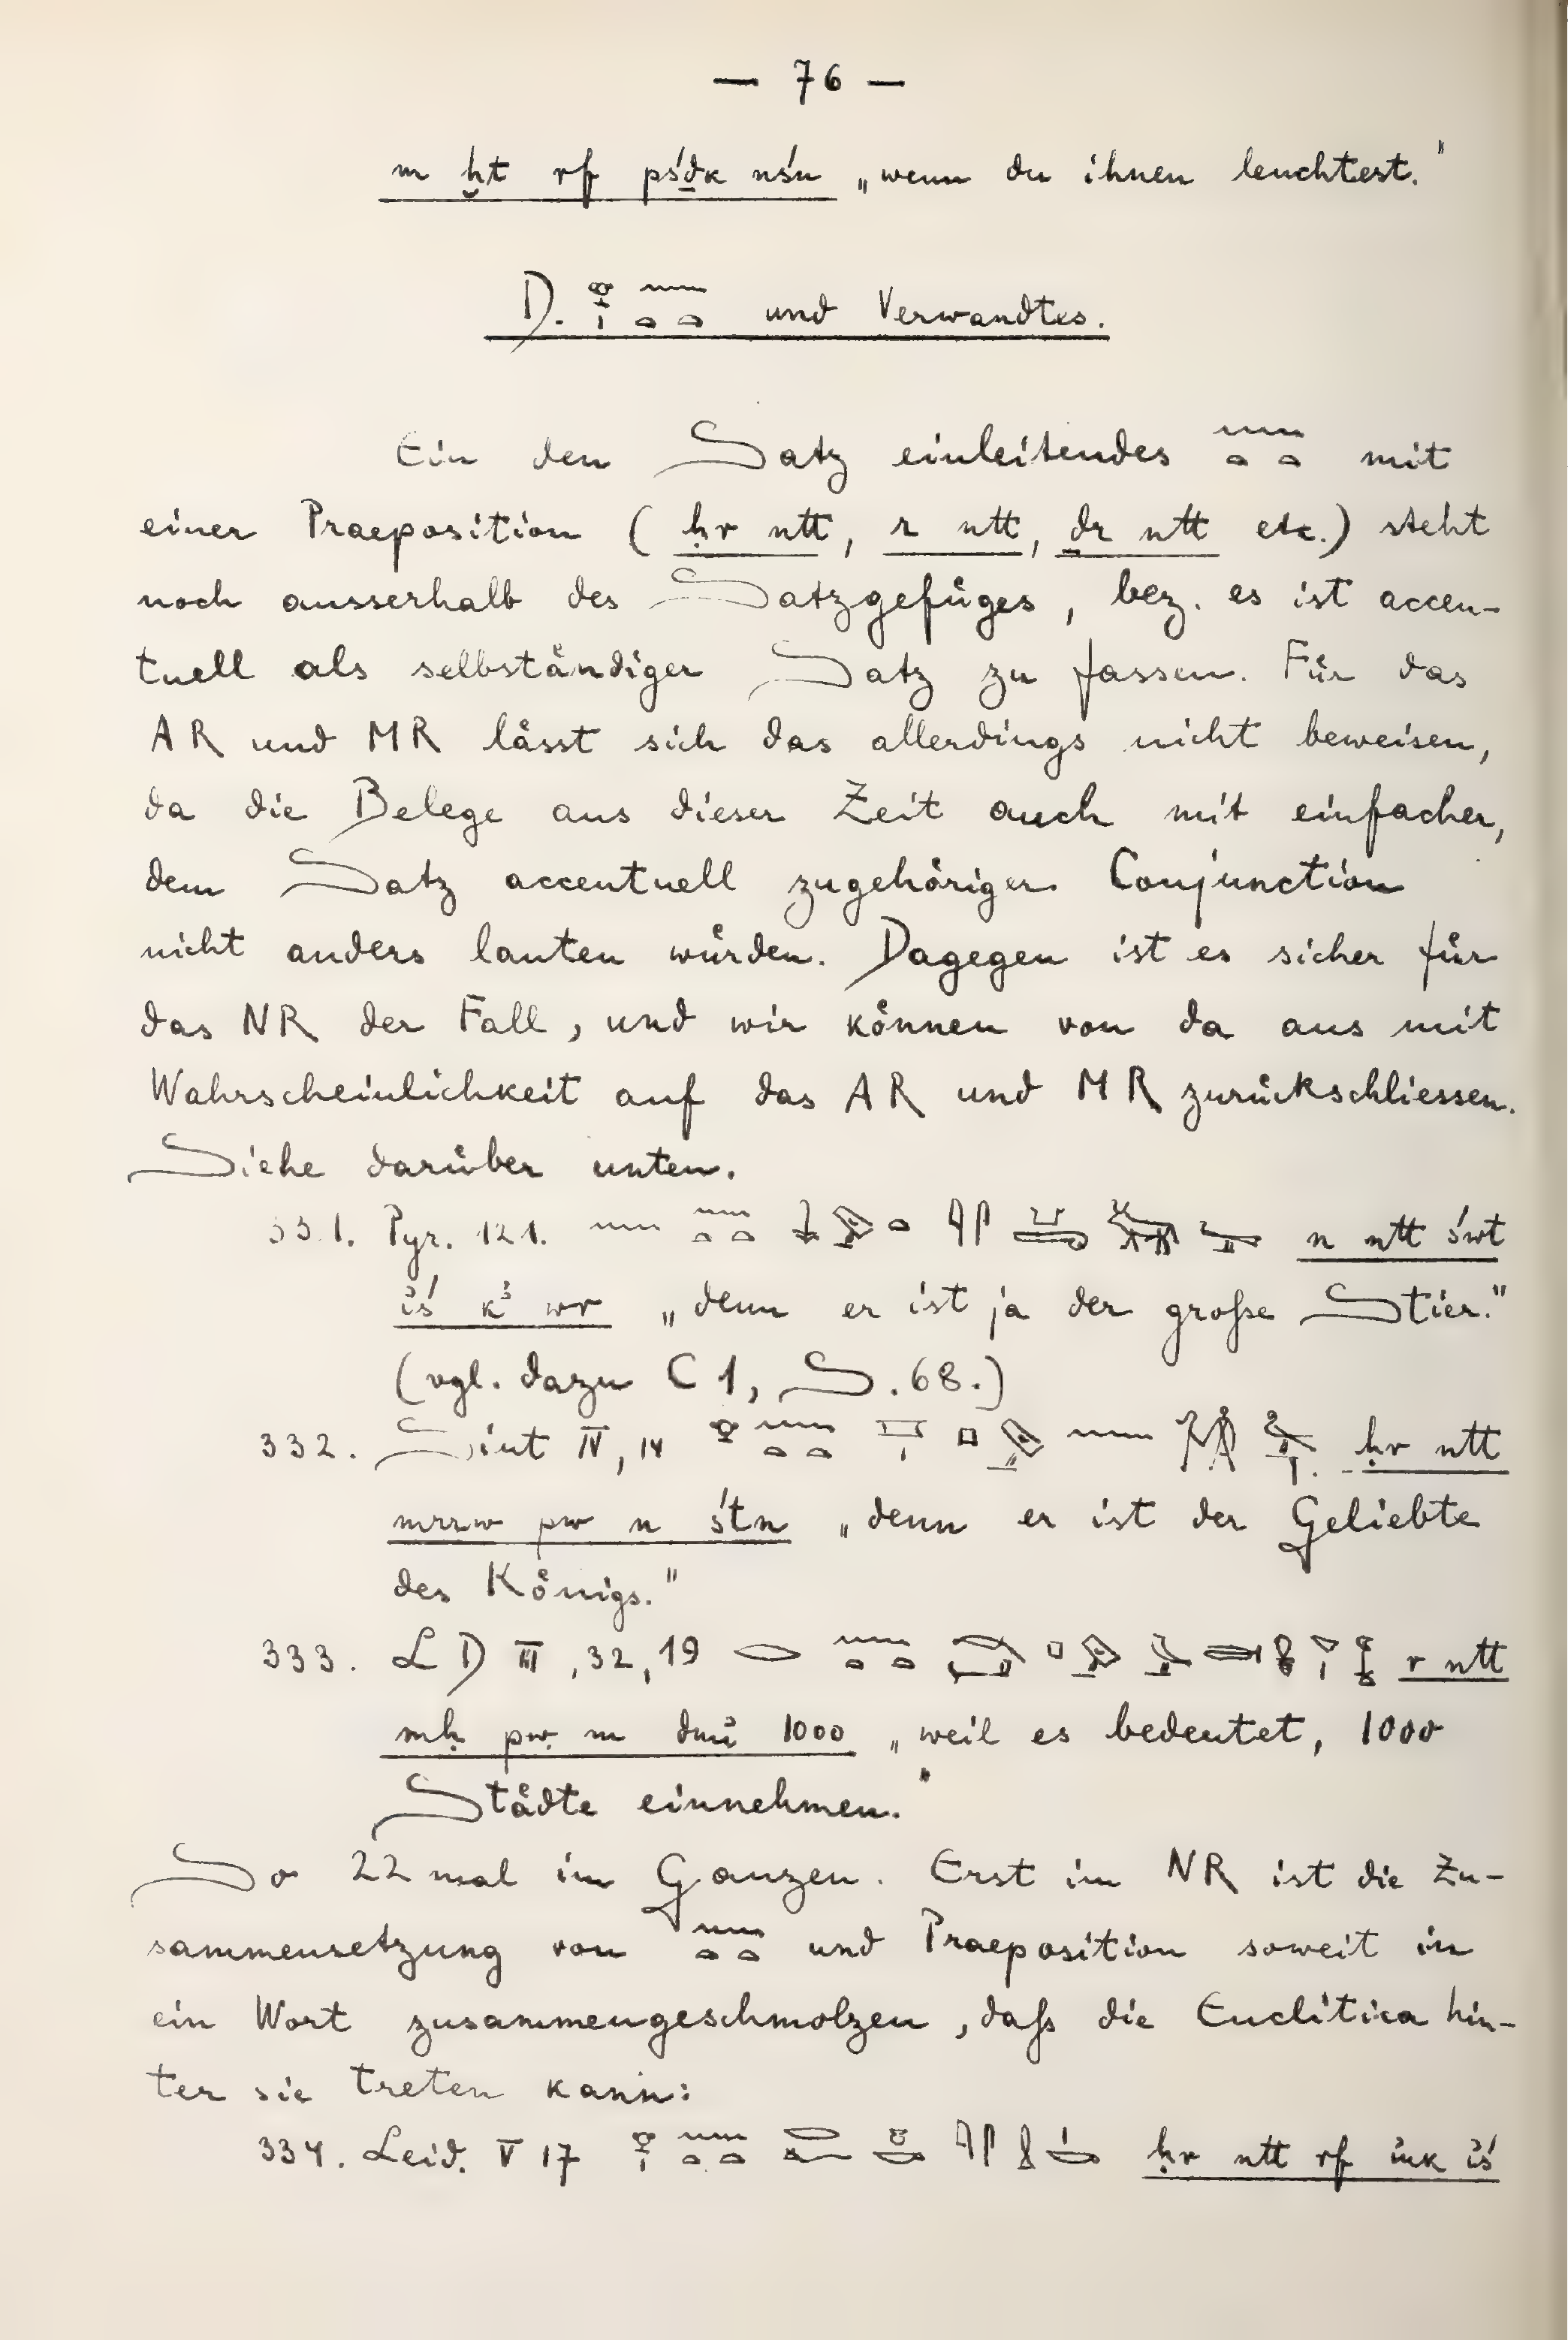 — 76 —
m ḫt rf pśḏk nśn „wenn du ihnen leuchtest."
D. 𓁷𓏤𓈖𓏏𓏏 und Verwandtes.
Ein den Satz einleitendes 𓈖𓏏𓏏 mit
einer Praeposition (ḥr ntt, r ntt, ḏr ntt etc.) steht
noch ausserhalb des Satzgefüges, bez. es ist accen-
tuell als selbständiger Satz zu fassen. Für das
AR und MR lässt sich das allerdings nicht beweisen,
da die Belege aus dieser Zeit auch mit einfacher,
dem Satz accentuell zugehöriger Conjunction
nicht anders lauten würden. Dagegen ist es sicher für
das NR der Fall, und wir können von da aus mit
Wahrscheinlichkeit auf das AR und MR zurückschliessen.
Siehe darüber unten.
331. Pyr. 121. 𓈖 𓈖𓏏𓏏 𓇓𓅱𓏏 n ntt śwt
iś kꜣ wr „denn er ist ja der große Stier."
(vgl. dazu C 1, S. 68.)
332. Siut IV, 14 𓁷 𓈖𓏏𓏏 ḥr ntt
mrrw pw n śtn „denn er ist der Geliebte
des Königs."
333. LD III, 32, 19 𓂋 𓈖𓏏𓏏 r ntt
mḥ pw m dmi 1000 „weil es bedeutet, 1000
Städte einnehmen."
So 22 mal im Ganzen. Erst im NR ist die Zu-
sammensetzung von 𓈖𓏏𓏏 und Praeposition soweit in
ein Wort zusammengeschmolzen, daß die Enclitica hin-
ter sie treten kann:
334. Leid. V 17 𓁷𓏤 𓈖𓏏𓏏 𓂋𓆑 𓏌𓎡 𓇋𓋴 ḥr ntt rf ink iś